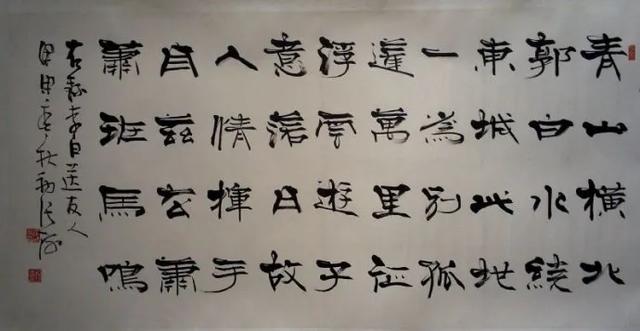 青山橫北
郭白水繞
東城此地
一為別孤
蓬萬里征
浮雲遊子
意落日故
人情揮手
自茲去蕭
蕭班馬鳴
右錄李白送友人
甲申季秋